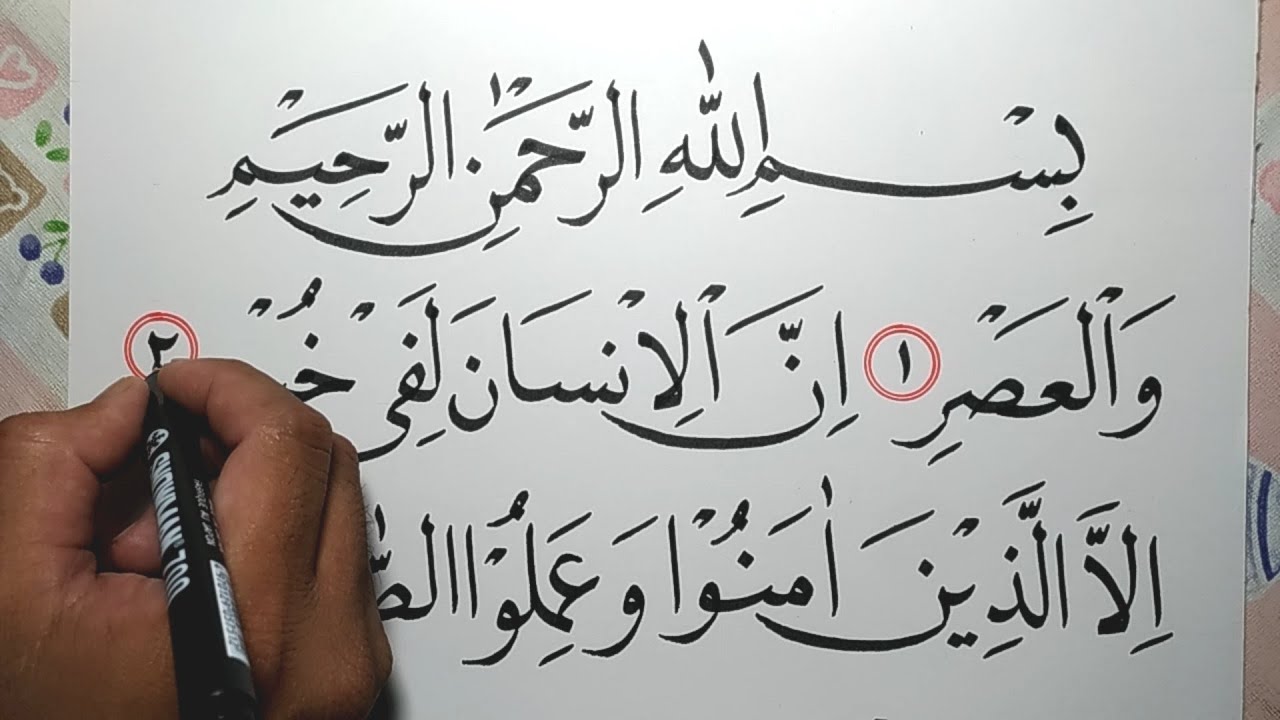 بِسْمِ اللّٰهِ الرَّحْمٰنِ الرَّحِيْمِ
وَالْعَصْرِ ١ اِنَّ الْاِنْسَانَ لَفِيْ ٢
اِلاَّ الَّذِيْنَ اٰمَنُوْا وَعَمِلُوْا
SNOWMAN-700